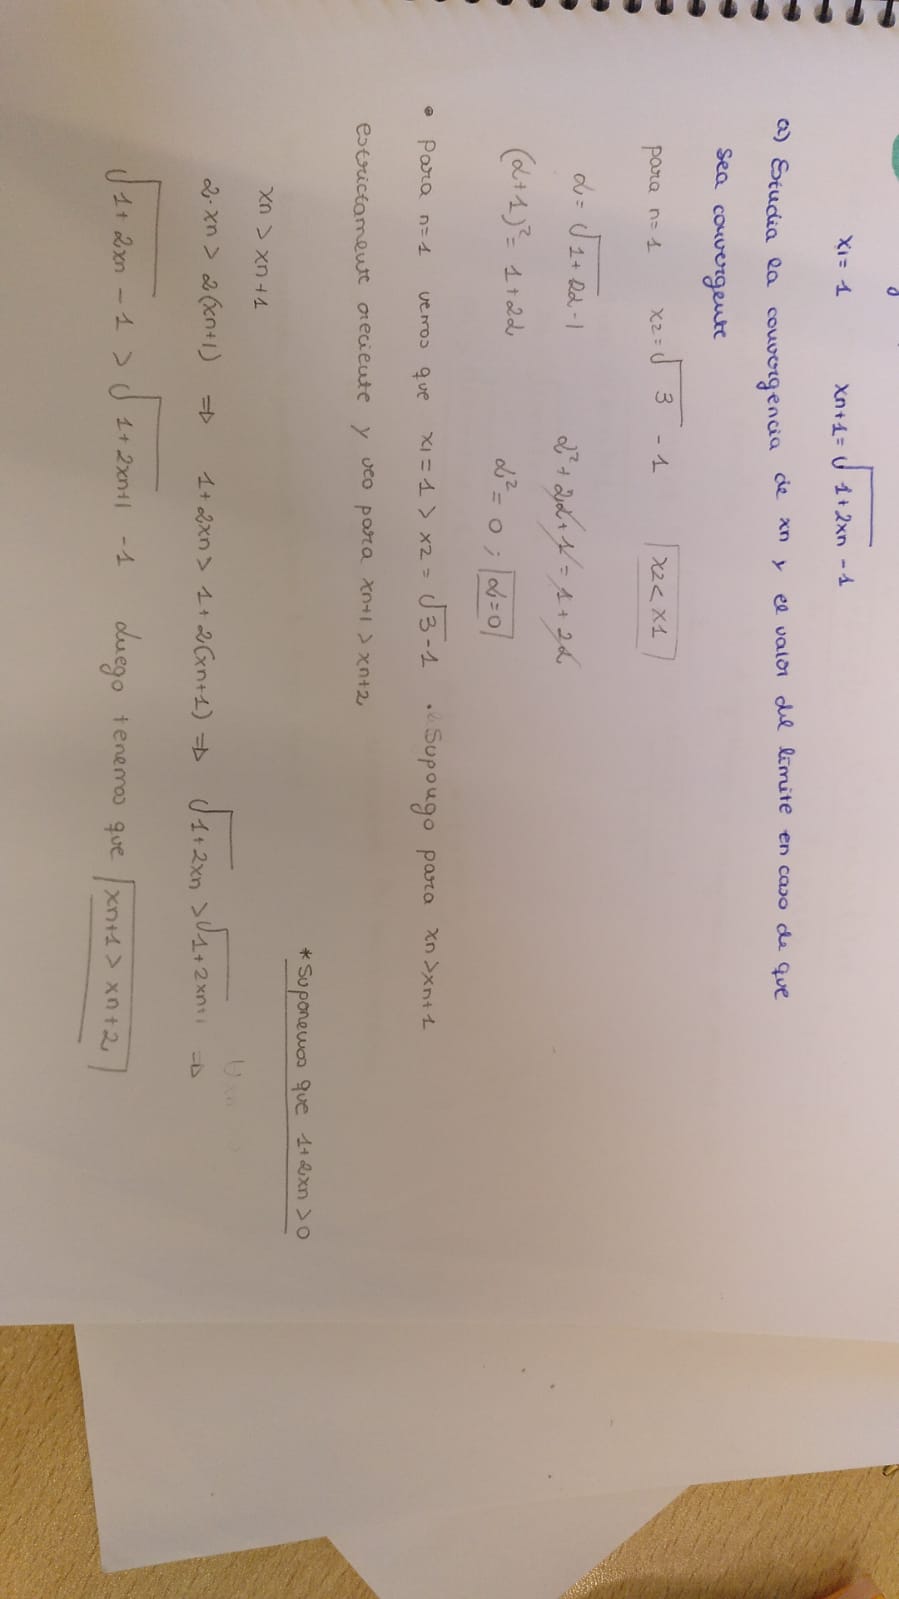 x1= 1 xn+1= √1+2xn - 1
a) Estudia la convergencia de xn y el valor del límite en caso de que
sea convergente
para n=1 x2=√3 - 1 x2< x1
α= √1+2α-1 α²+2α+1 = 1+2α
(α+1)²= 1+2α α²= 0 ; α=0
• Para n=1 vemos que x1=1 > x2= √3-1 . Supongo para xn>xn+1
estrictamente creciente y veo para xn+1 > xn+2
*Suponemos que 1+2xn >0
xn > xn+1
2·xn> 2(xn+1) ⇒ 1+2xn> 1+2(xn+1) ⇒ √1+2xn >√1+2xn+1 ⇒
√1+ 2xn - 1 > √1+2xn+1 -1 Luego tenemos que xn+1> xn+2